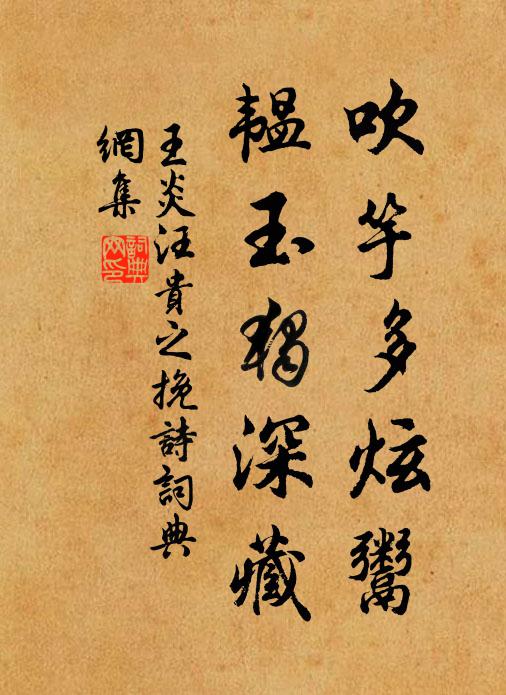 吹竽多炫鬻
韞玉独深藏
王炎汪貴之挽詩詞典
網集
詞典网印